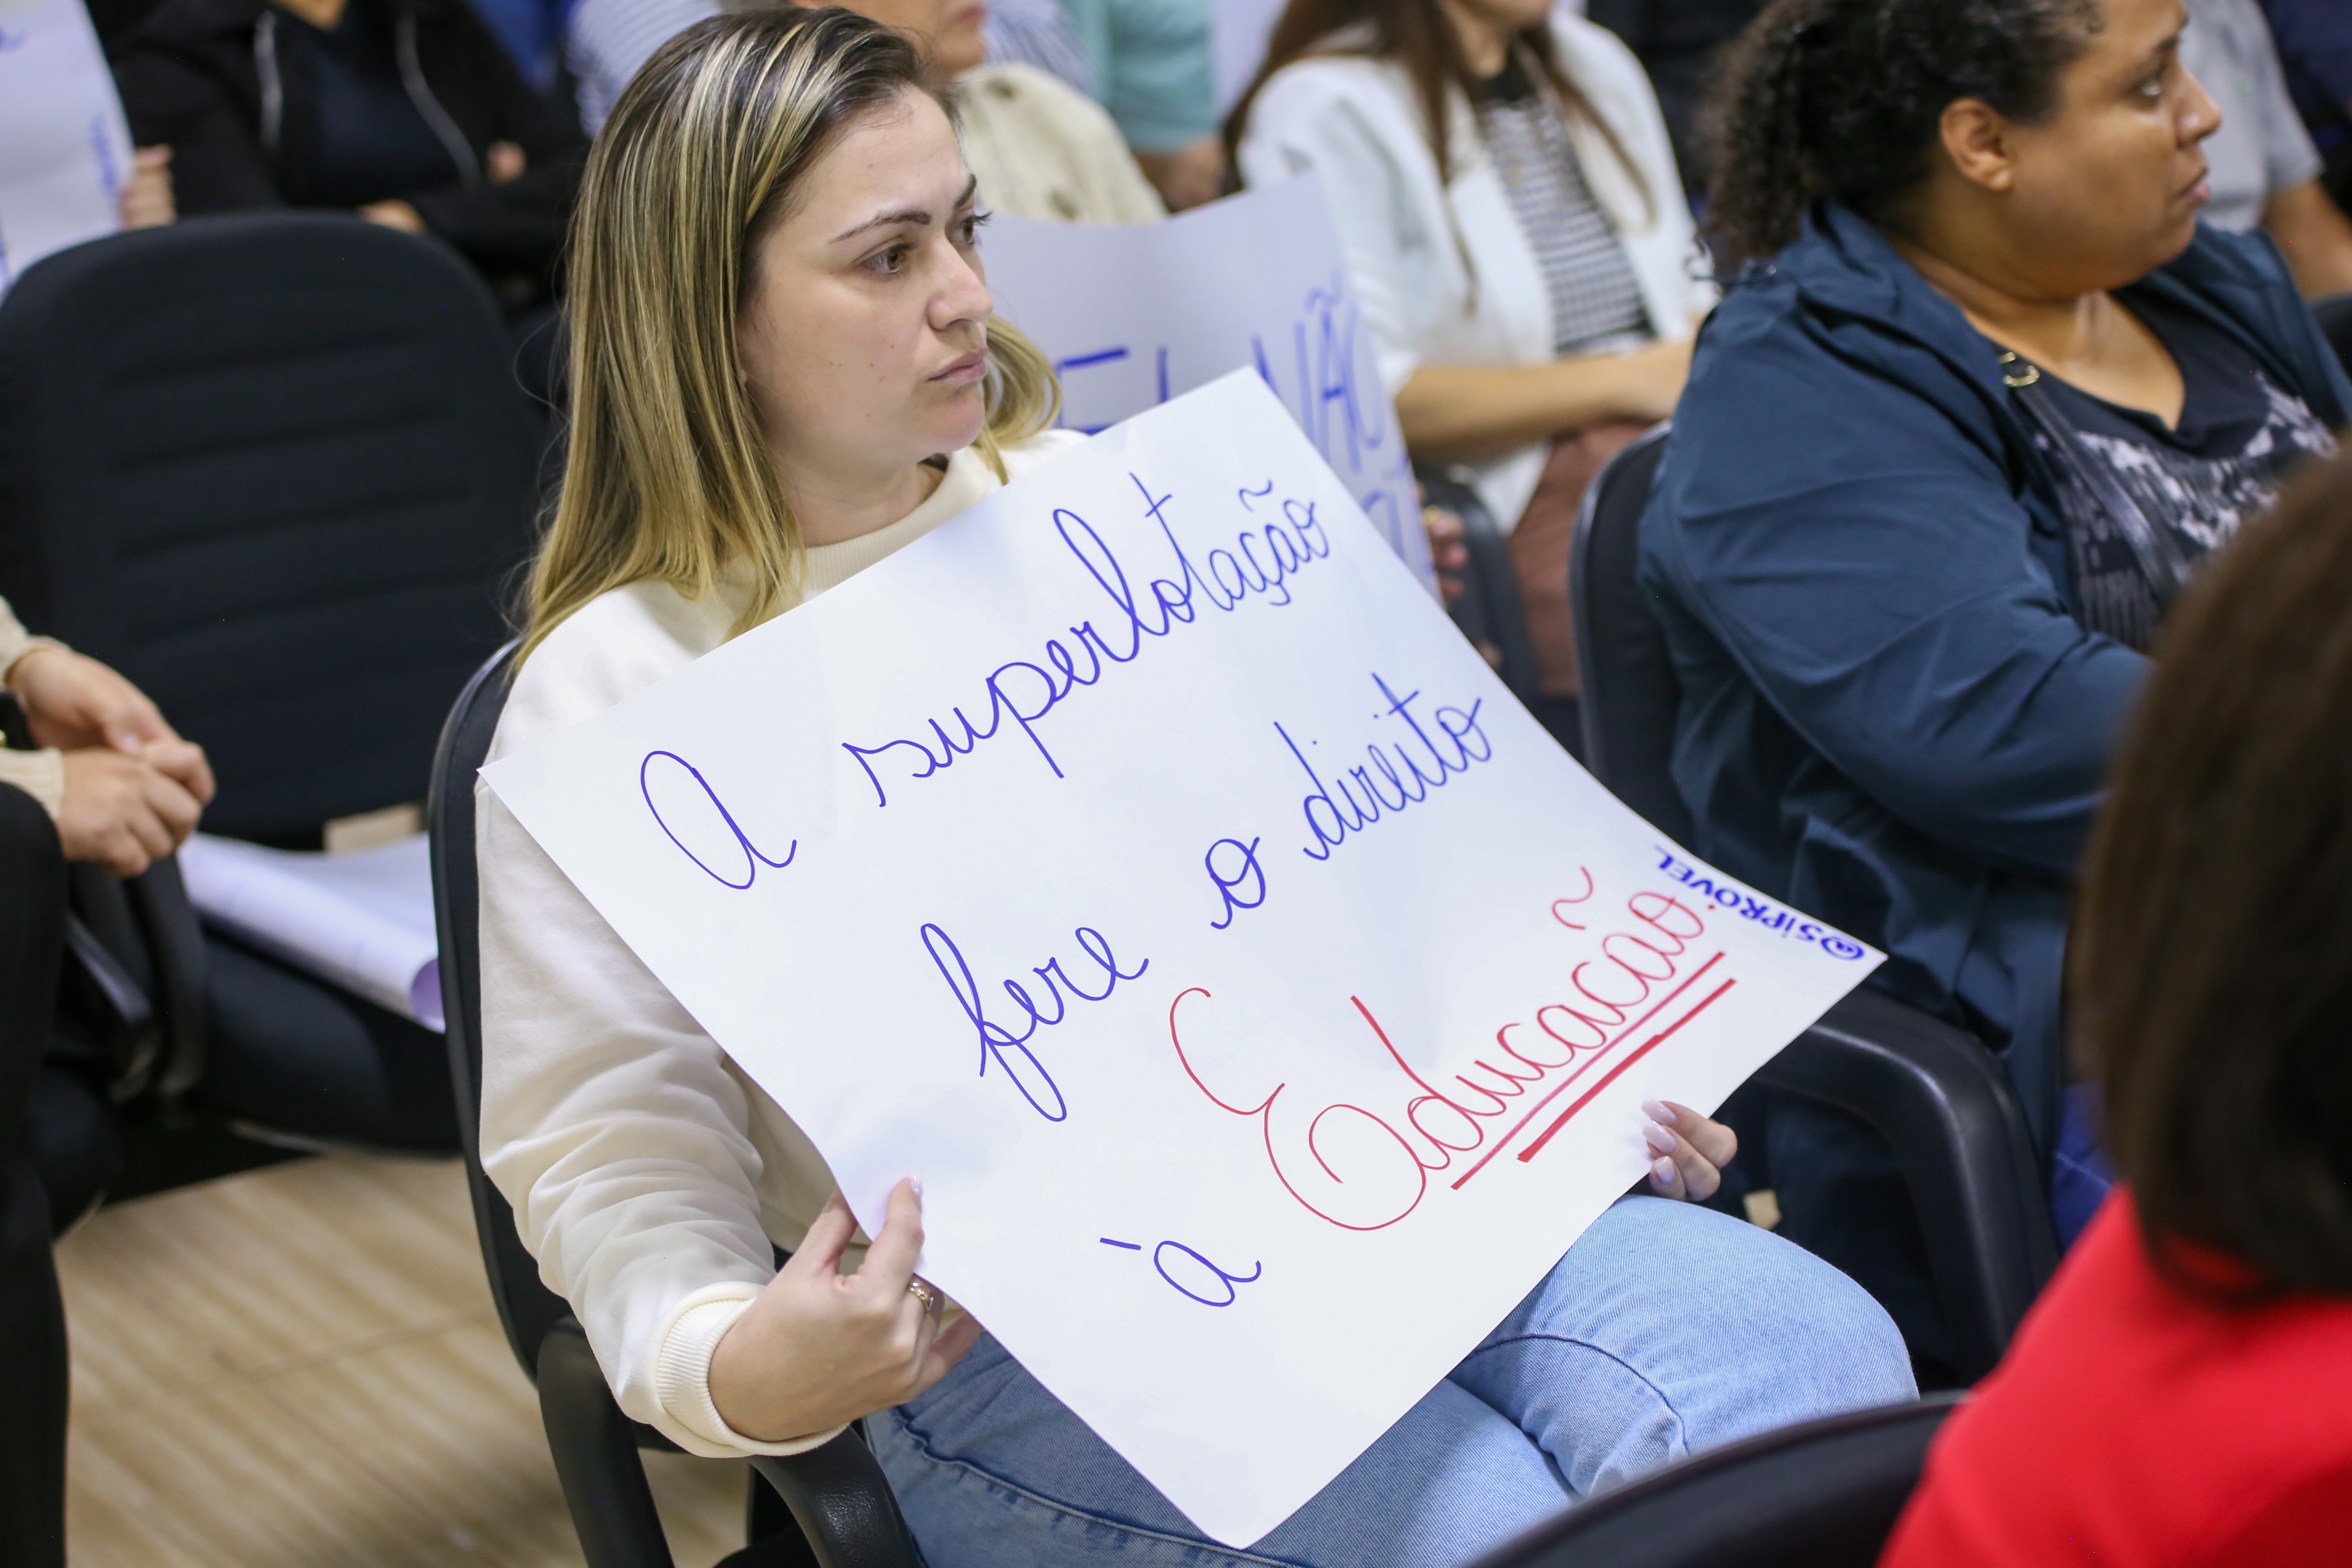 A superlotação
fere o direito
à Educação
@SiPROVEL
NÃO